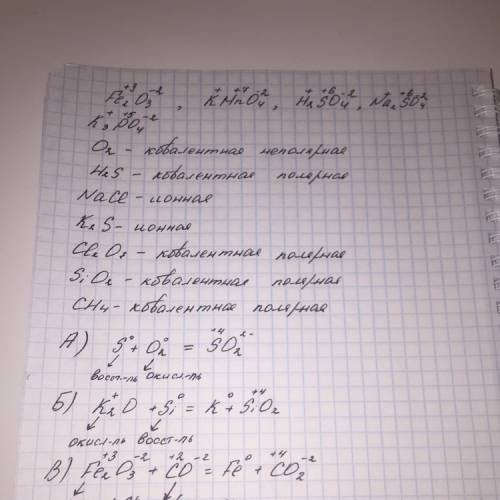 Fe₂⁺³O₃⁻², K⁺Mn⁺⁷O₄⁻², H₂⁺S⁺⁶O₄⁻², Na₂⁺S⁺⁶O₄⁻²
K₃⁺P⁺⁵O₄⁻²
O₂ - ковалентная неполярная
H₂S - ковалентная полярная
NaCl - ионная
K₂S - ионная
Cl₂O₇ - ковалентная полярная
SiO₂ - ковалентная полярная
CH₄ - ковалентная полярная
А) S⁰ + O₂⁰ = S⁺⁴O₂²⁻
восст-ль окисл-ль
Б) K₂⁺O + Si⁰ = K⁰ + Si⁺⁴O₂
окисл-ль восст-ль
В) Fe₂⁺³O₃⁻² + C⁺²O⁻² = Fe⁰ + C⁺⁴O₂⁻²